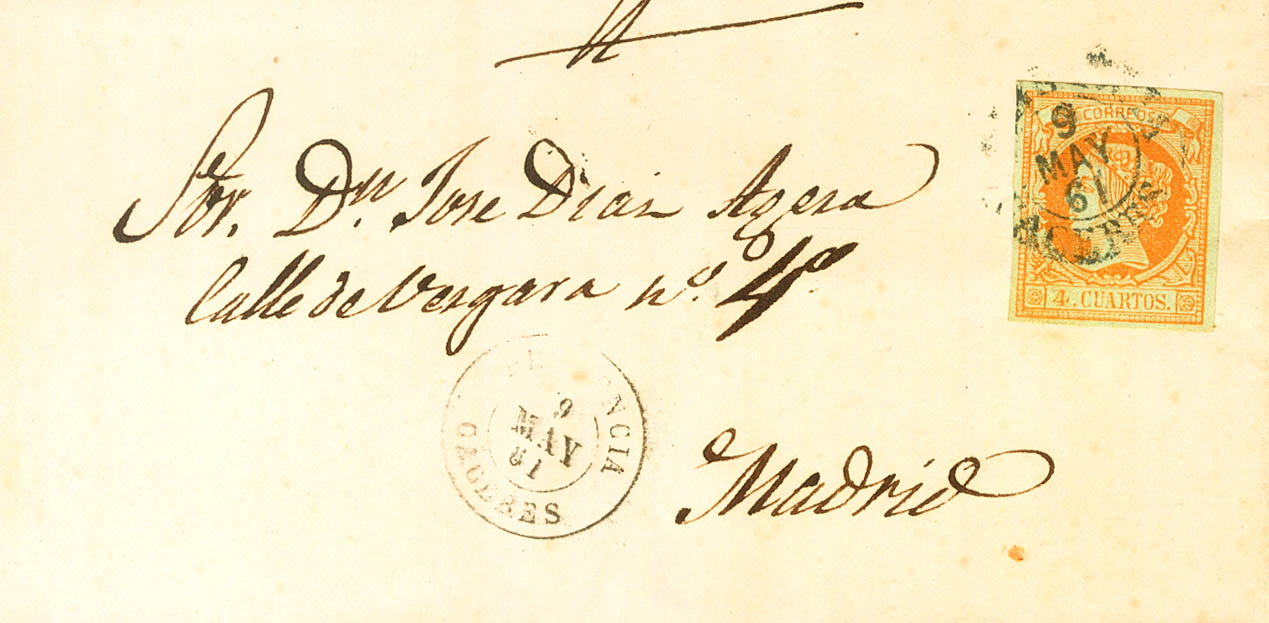 Sor. Dn Jose Diaz Agera
Calle de Vergara nº. 4º
Madrid
CORREOS
9
MAY
61
CACERES
4 CUARTOS.
9
MAY
61
CACERES